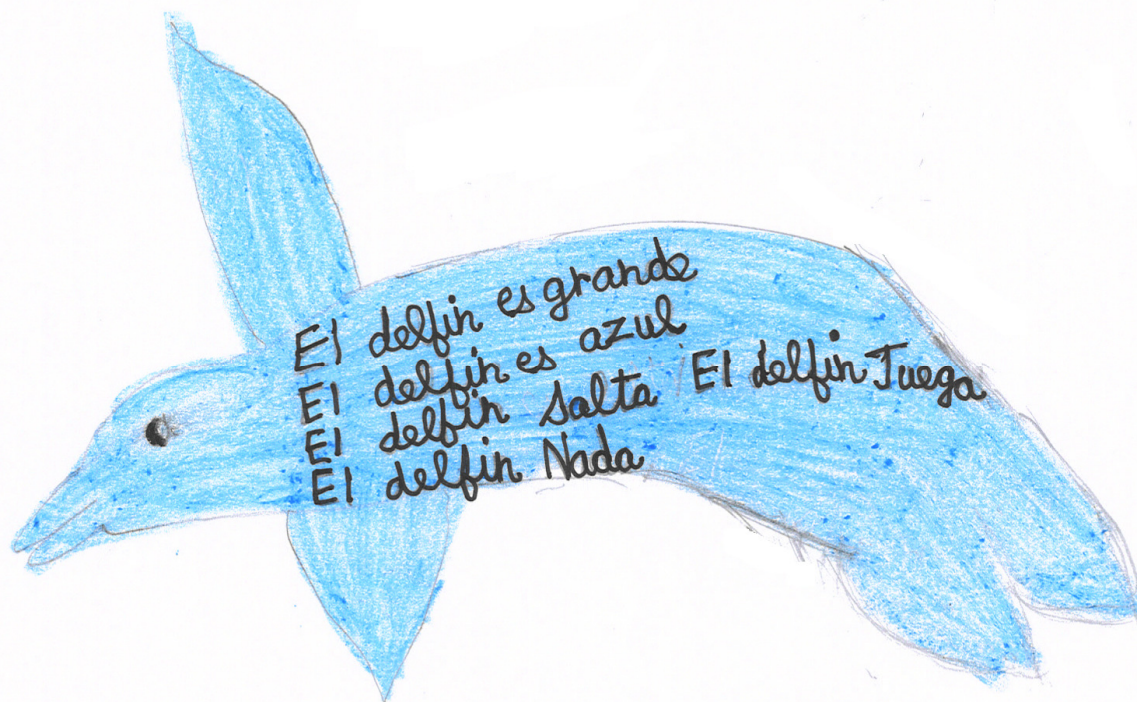 El delfin es grande
El delfin es azul
El delfin Salta El delfin Juega
El delfin Nada